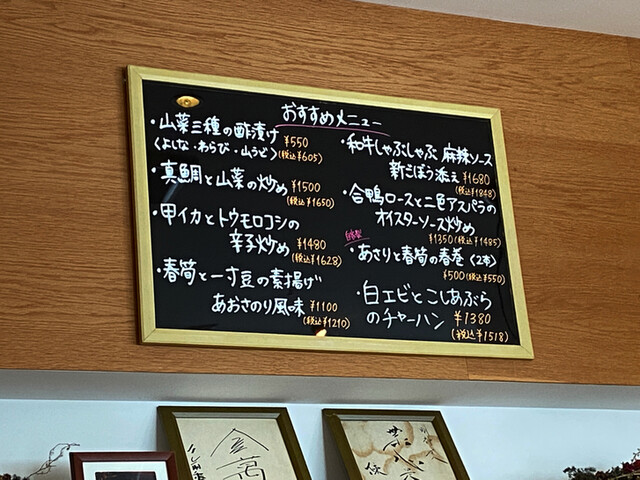 おすすめメニュー
・山菜三種の酢漬け ¥550
〈よしな・わらび・山うど〉(税込¥605)
・真鯛と山菜の炒め ¥1500
(税込¥1650)
・甲イカとトウモロコシの
辛子炒め ¥1480
(税込¥1628)
・春筍と一寸豆の素揚げ
あおさのり風味 ¥1100
(税込¥1210)
・和牛しゃぶしゃぶ 麻辣ソース
新ごぼう添え ¥1680
(税込¥1848)
・合鴨ロースと二色アスパラの
オイスターソース炒め
¥1350(税込¥1485)
自家製
・あさりと春筍の春巻〈2本〉
¥500(税込¥550)
・白エビとこしあぶら
のチャーハン ¥1380
(税込¥1518)
金萬